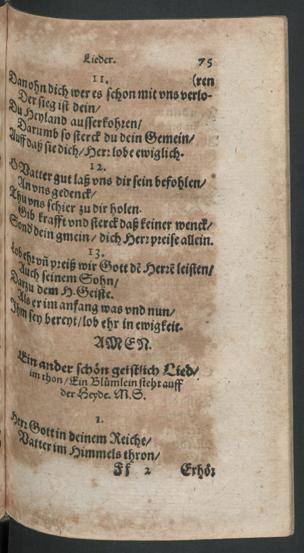 Lieder. 75
11. (ren
Dan ohn dich wer es schon mit vns verlo-
Der sieg ist dein/
Du Heyland ausserkohren/
Darumb so sterck du dein Gemein/
Auff daß sie dich/ Herr lobe ewiglich.
12.
O Vatter gut laß vns dir sein befohlen/
An vns gedenck/
vns schier zu dir holen.
Gib krafft vnd sterck daß keiner wenck/
Sond dein gmein/ dich Herr preise allein.
13.
Lob ehr vñ preiß wir Gott dẽ Herrẽ leisten/
Auch seinem Sohn/
Darzu dem H. Geiste.
Als er im anfang was vnd nun/
Ihm sey bereyt/ lob ehr in ewigkeit.
AMEN.
Ein ander schön geistlich Lied/
im thon/ Ein Blümlein steht auff
der Heyde. M. S.
1.
Herr Gott in deinem Reiche/
Vatter im Himmels thron/
Ff 2 Erhör